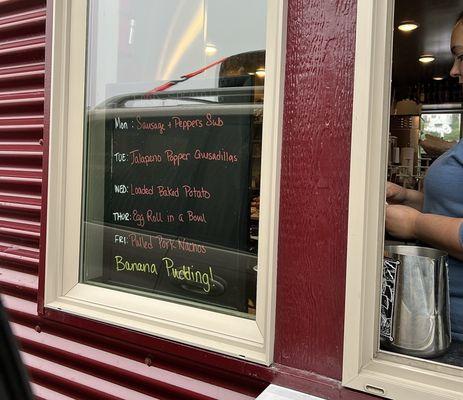 Mon: Sausage + Peppers Sub
Tue: Jalapeno Popper Quesadillas
Wed: Loaded Baked Potato
Thur: Egg Roll in a Bowl
Fri: Pulled Pork Nachos
Banana Pudding!